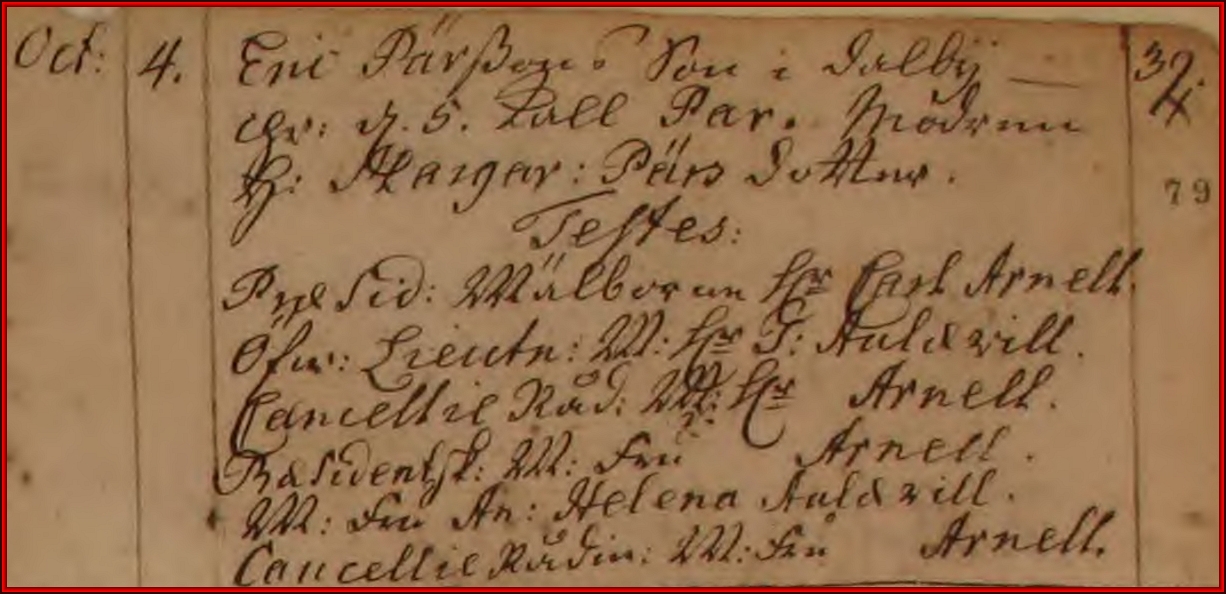 Oct: 4. Eric Pärßons Son i Dalbÿ — 32.
chr: d. 5. Kall Par. Modren
H: Margar: Pärs Dotter.
79
Testes:
Præsid: Wälborne Hr Carl Arnell.
Öfw: Lieutn: W: Hr J: Auldewill.
Cancellie Råd: W: Hr Arnell.
Præsidentsk: W: Fru Arnell.
W: Fru An: Helena Auldewill.
Cancellie Rådin: W: Fru Arnell.